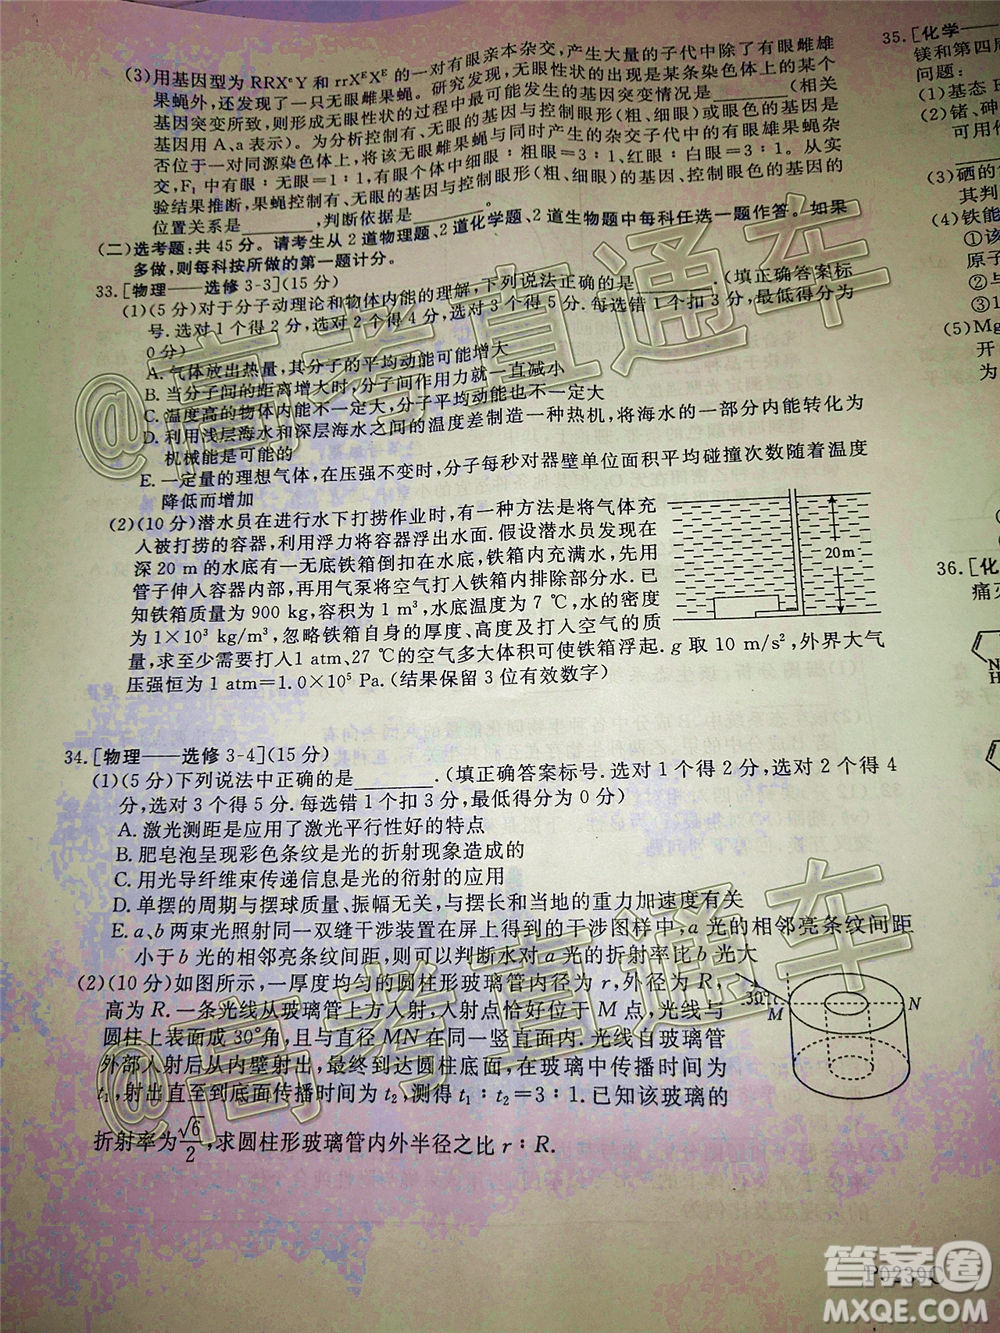 (3)用基因型为 RRXᵉY 和 rrXᴱXᴱ 的一对有眼亲本杂交,产生大量的子代中除了有眼雌雄
果蝇外,还发现了一只无眼雌果蝇。研究发现,无眼性状的出现是某条染色体上的某个
基因突变所致,则形成无眼性状的过程中最可能发生的基因突变情况是________(有眼
基因用 A、a 表示)。为分析控制有、无眼的基因与控制眼形(粗、细眼)或眼色的基因是
否位于一对同源染色体上,将该无眼雌果蝇与
验结果推断,果蝇控制有、无眼的基因与控制眼形(粗、细眼)的基因、控制眼色的基因的
位置关系是________,判断依据是________。
(二)选考题:共 45 分。请考生从 2 道物理题、2 道化学题、2 道生物题中每科任选一题作答。如果
多做,则每科按所做的第一题计分。
33.[物理——选修 3-3](15 分)
(1)(5 分)对于分子动理论和物体内能的理解,下列说法正确的是________.(填正确答案标
号.选对 1 个得 2 分,选对 2 个得 4 分,选对 3 个得 5 分.每选错 1 个扣 3 分,最低得分为
0 分)
A. 气体放出热量,其分子的平均动能可能增大
B. 当分子间的距离增大时,分子间作用力就一直减小
C. 温度高的物体内能不一定大,分子平均动能一定大
D. 利用浅层海水和深层海水之间的温度差制造一种热机,将海水的一部分内能转化为
机械能是可能的
E. 一定量的理想气体,在压强不变时,分子每秒对器壁单位面积平均碰撞次数随着温度
降低而增加
(2)(10 分)潜水员在进行水下打捞作业时,有一种方法是将气体充
入被打捞的容器,利用浮力将容器浮出水面.假设潜水员发现在
深 20 m 的水底有一无底铁箱倒扣在水底,铁箱内充满水,先用
管子伸入容器内部,再用气泵将空气打入铁箱内排除部分水.已
知铁箱质量为 900 kg,容积为 1 m³,水底温度为 7 ℃,水的密度
为 1×10³ kg/m³,忽略铁箱自身的厚度、高度及打入空气的质量,
求需要打入1 atm、27 ℃的空气多大体积可使铁箱浮起.g 取 10 m/s²,外界大气
压强恒为 1 atm=1.0×10⁵ Pa.(结果保留 3 位有效数字)
20m
34.[物理——选修 3-4](15 分)
(1)(5 分)下列说法中正确的是________.(填正确答案标号.选对 1 个得 2 分,选对 2 个得 4
分,选对 3 个得 5 分.每选错 1 个扣 3 分,最低得分为 0 分)
A. 激光测距是应用了激光平行性好的特点
B. 肥皂泡呈现彩色条纹是光的折射现象造成的
C. 用光导纤维束传递信息是光的衍射的应用
D. 单摆的周期与摆球质量、振幅无关,与摆长和当地的重力加速度有关
E. a、b 两束光照射同一双缝干涉装置在屏上得到的干涉图样中,a 光的相邻亮条纹间距
小于 b 光的相邻亮条纹间距,则可以判断水对 a 光的折射率比 b 光大
(2)(10 分)如图所示,一厚度均匀的圆柱形玻璃管内径为 r,外径为 R,
高为 R.一条光线从玻璃管上方入射,入射点恰好位于 M 点,光线与
圆柱上表面成 30°角,且与直径 MN 在同一竖直面内.光线自玻璃管
外部入射后从内壁射出,到达圆柱底面,在玻璃中传播时间为
t₁,射出直至到底面传播时间为 t₂,测得 t₁∶t₂=3∶1.已知该玻璃的
折射率为√6/2,求圆柱形玻璃管内外半径之比 r∶R.
30°
M
N
35.[化学——
镁和第四周
问题:
(1)基态
(2)锗、砷
可用作
(3)硒的
其判
(4)铁能
①该
原子
②与
③1
(5)Mg
开
36.[化
痛
N
H
@高考直通车
@高考直通车
P0239C
答案圈
MXQE.COM